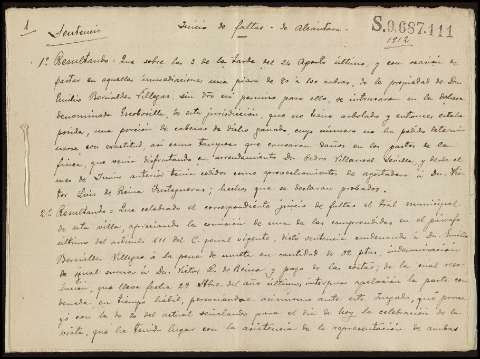 1
Sentencia
Juicio de faltas - de Alcántara
S.9.687.111
1912
1º Resultando: Que sobre las 3 de la tarde del 24 Agosto último, y con ocasión de
pastar en aquellas inmediaciones una piara de 80 a los cerdos, de la propiedad de Don
Emilio Bernáldez Villegas, sin dos ni permiso para ello, se introdujeron en la dehesa
denominada de esta jurisdicción, que no tiene arbolado y entonces estaba
una porción de cabezas de dicho ganado cuyo número no ha podido determi
narse con exactitud, así como tampoco que causaran daños en los pastos de la
finca, que venía disfrutando en arrendamiento Don Pedro Villarroel Sevilla, y desde el
mes de Junio anterior tenía cedidos como aprovechamiento de agostadero a Don Víc
tor Luis de Reina ; hechos que se declaran probados.
2º Resultando: Que celebrado el correspondiente juicio de faltas el Tral municipal
de esta villa, apreciando la comisión de una de las comprendidas en el párrafo
último del artículo 611 del C. penal vigente, dictó sentencia condenando a Don Emilio
Bernáldez Villegas a la pena de multa en cantidad de ptas, indemnización
de igual suma a Don Víctor L. de Reina y pago de las costas, de la cual reso
lución, que lleva fecha 23 del año último, interpuso apelación la parte con
denada en tiempo hábil, personándose asimismo ante este Juzgado, que prove
yó con la de del actual señalando para el día de hoy la celebración de la
vista, que ha tenido lugar con la asistencia de la representación de ambas